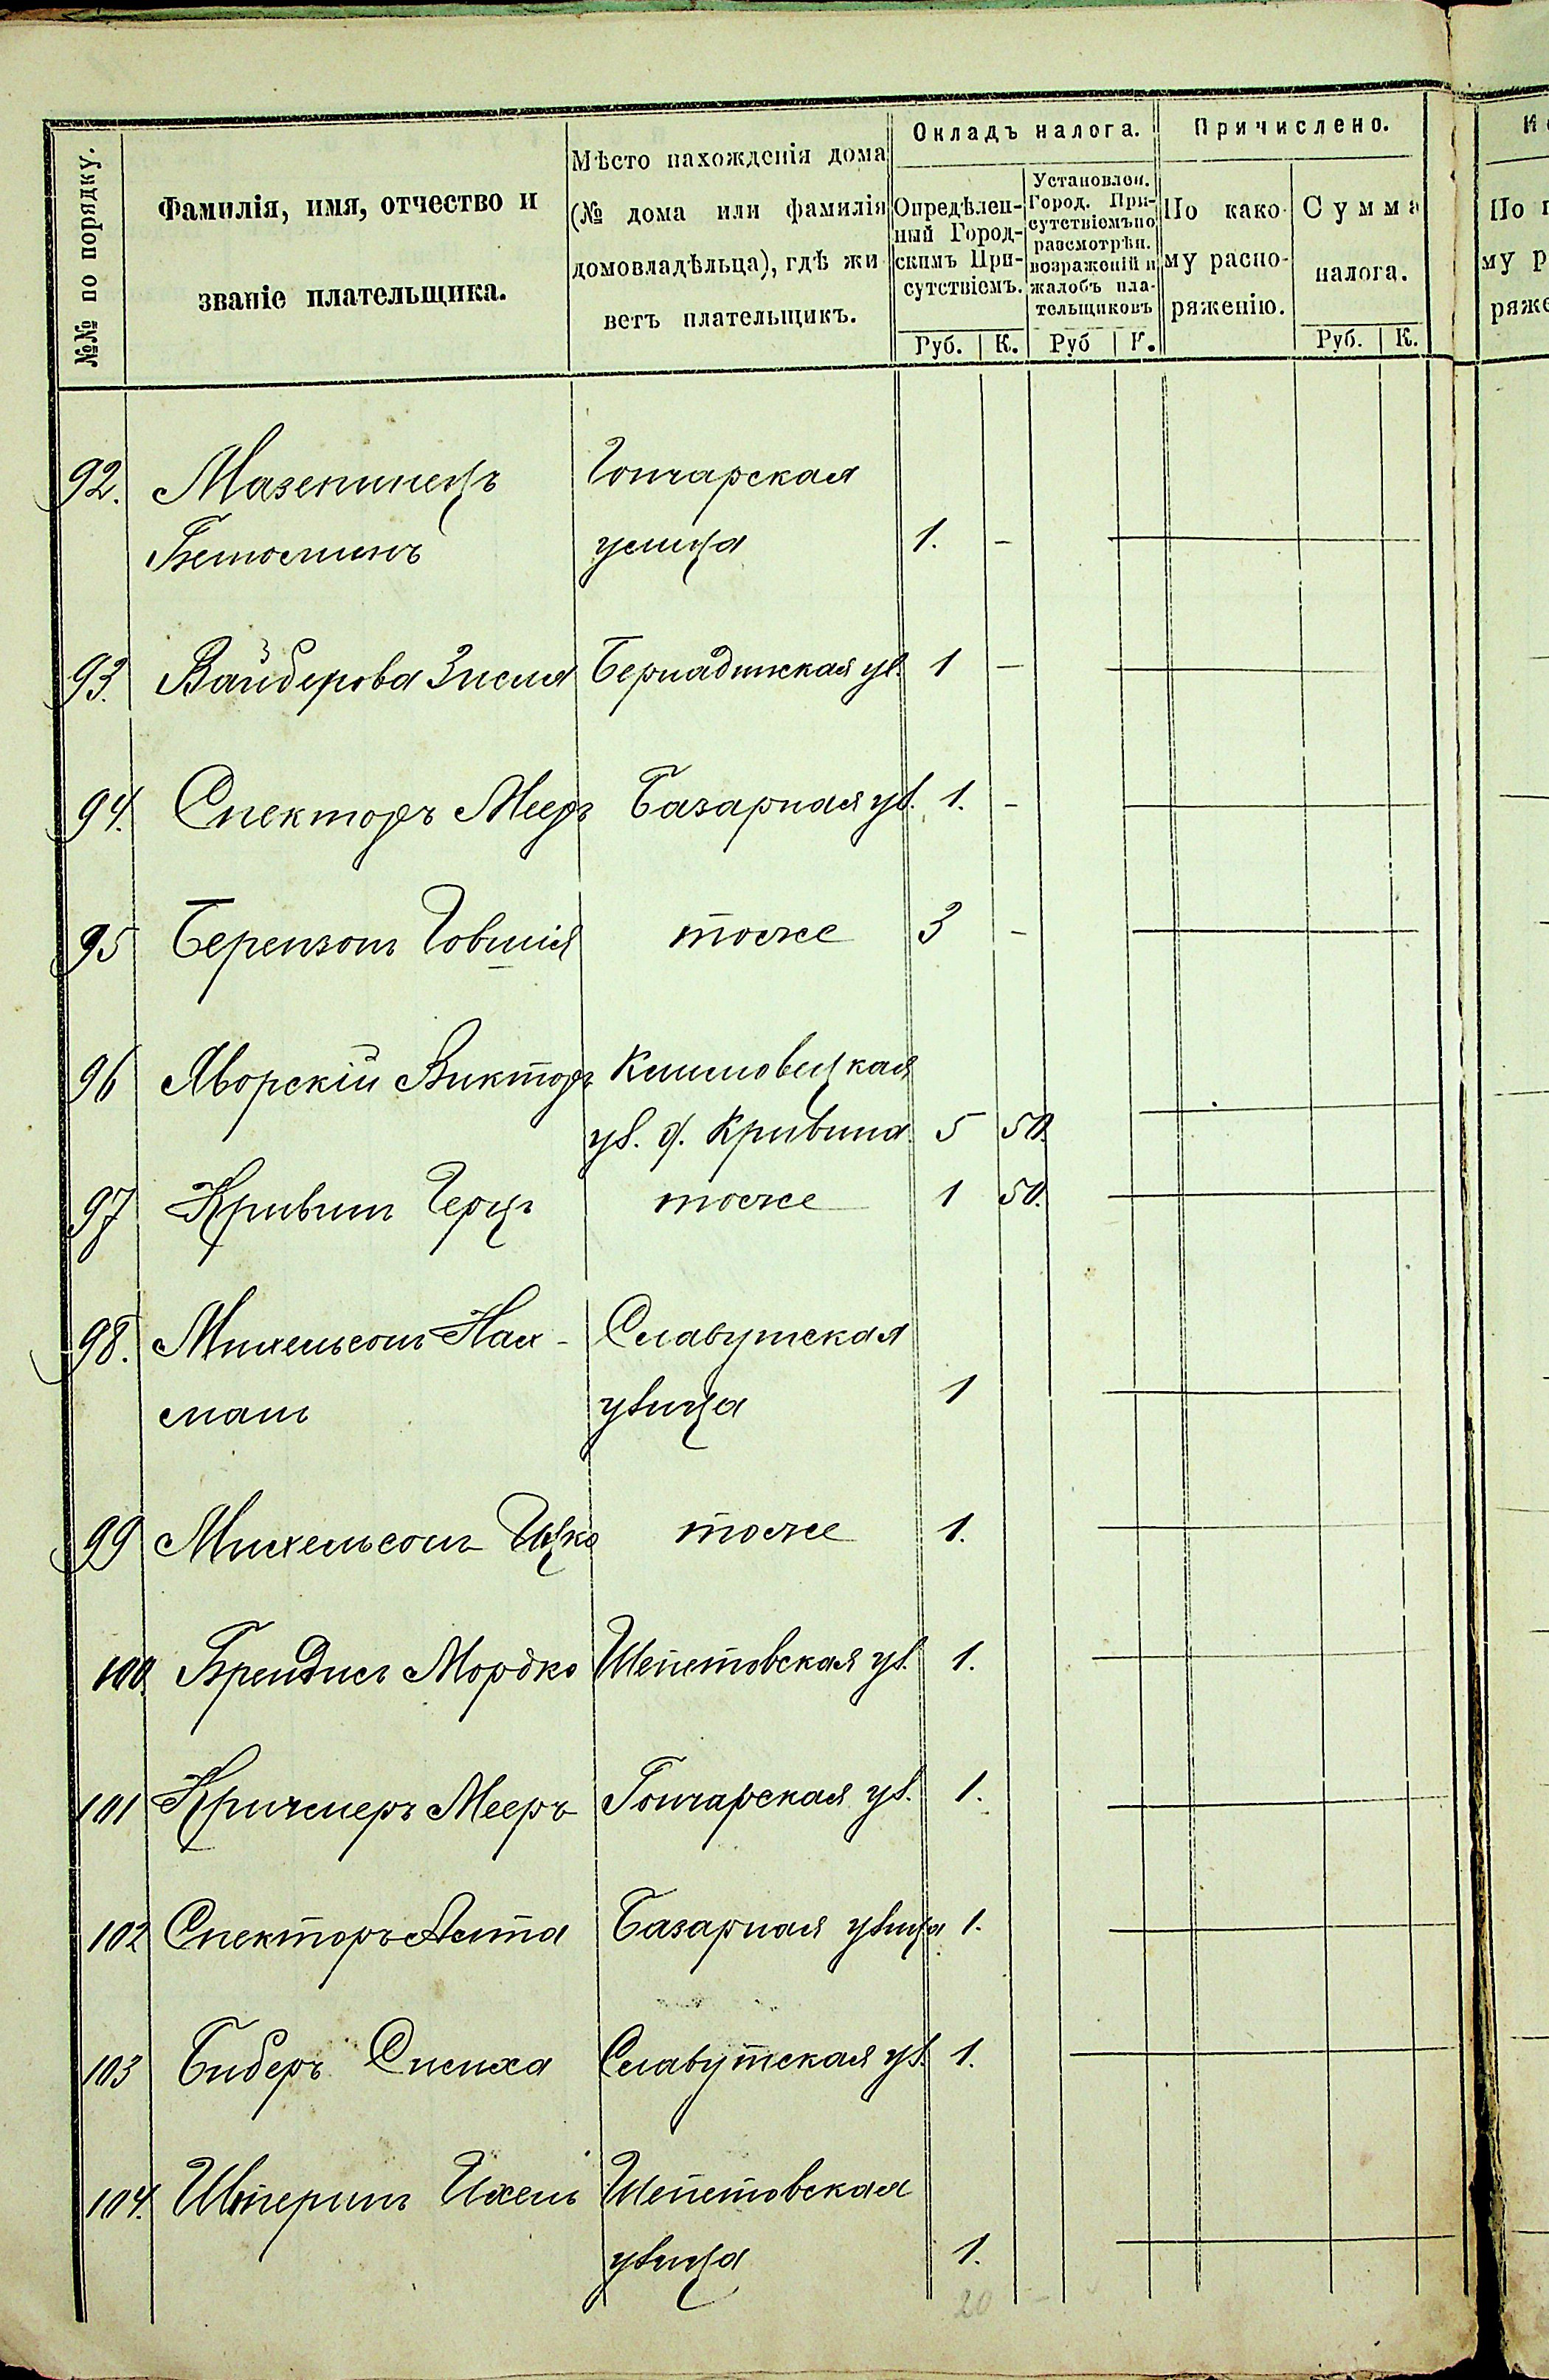 №№ по порядку.
Фамилія, имя, отчество и
званіе плательщика.
Мѣсто нахожденія дома
(№ дома или фамилія
домовладѣльца), гдѣ жи
ветъ плательщикъ.
Окладъ налога.
Опредѣлен-
ный Город-
скимъ При-
сутствіемъ.
Установлен.
Город. При-
сутствіемъ по
разсмотрѣн.
возраженій и
жалобъ пла-
тельщиковъ
Причислено.
По како-
му распо-
ряженію.
Сумма
налога.
Руб. К. Руб К. Руб. К.
По
му р
ряже
92. Мазепинецъ Гончарская
улица 1. -
93. Вайберова Зисля Бернадинская ул. 1 -
94. Спекторъ Мееръ Базарная ул. 1. -
95 Берензонъ Говшія тоже 3 -
96 Яворскій Викторъ
ул. д. Кривина 5 50.
97 Кривинъ Герцъ тоже 1 50.
98. Михельсонъ Нах- Славутская
манъ улица 1
99 Михельсонъ Ицко тоже 1.
100. Брендисъ Мордко Шепетовская ул. 1.
101 Кричмеръ Мееръ Гончарская ул. 1.
102 Спекторъ Аста Базарная улица 1.
103 Биберъ Симха Славутская ул. 1.
104. Ихель Шепетовская
улица 1.
20